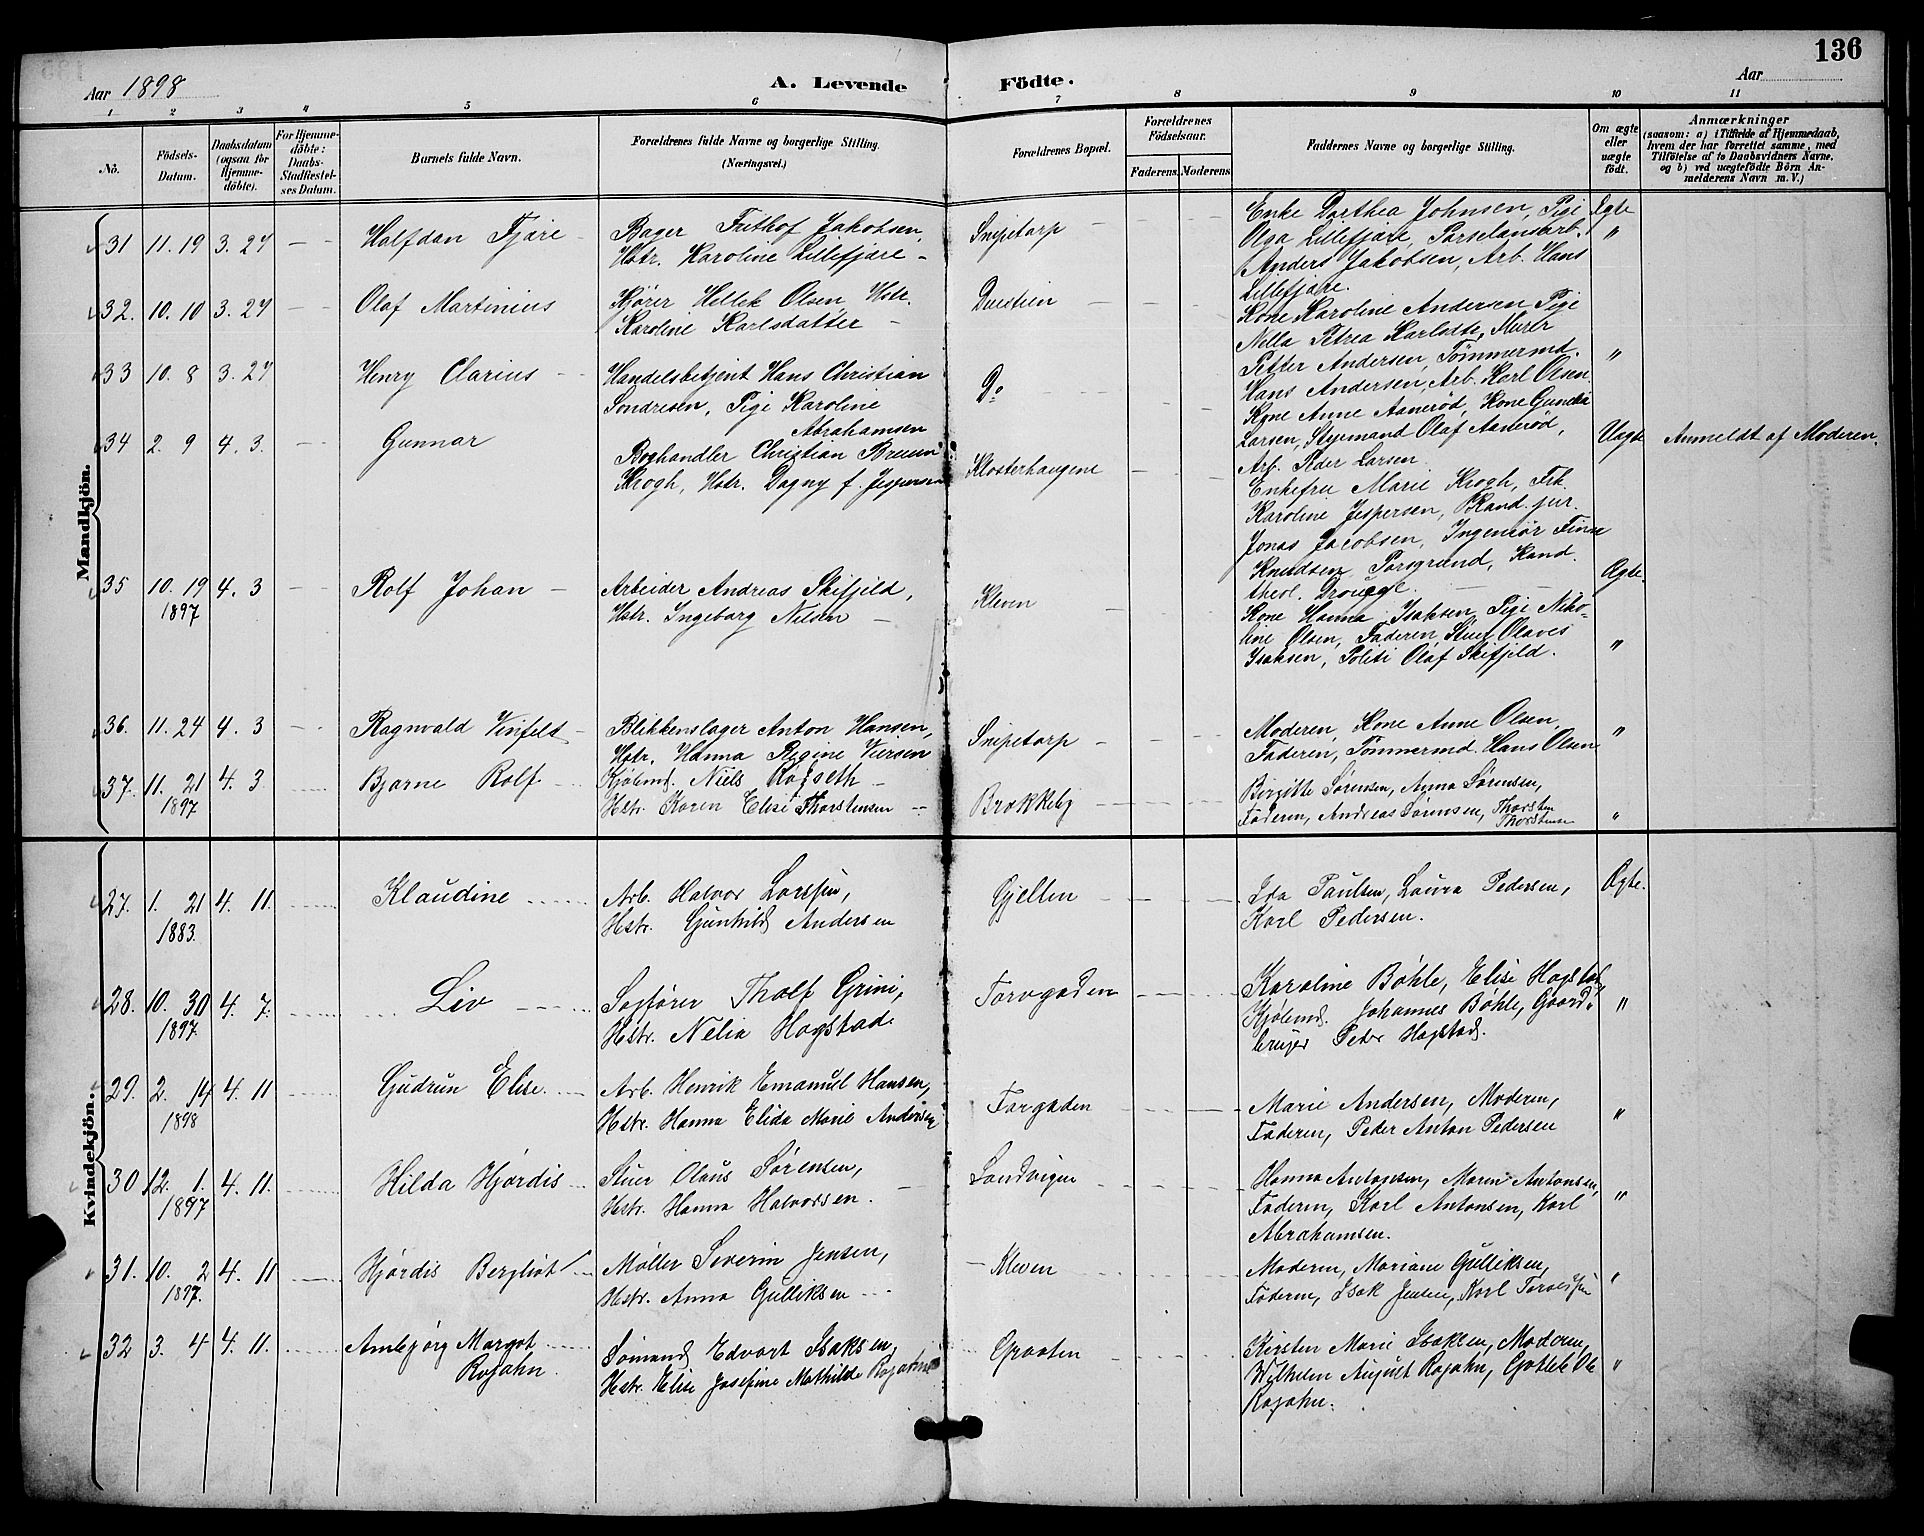 136
Aar 1898
A. Levende Födte.
Aar
1 2 3 4 5 6 7 8 9 10 11
No.
Födsels-Datum.
Daabsdatum (ogsaa for Hjemme-döbte).
For Hjemme-döbte: Daabs-Stadfæstel-ses Datum.
Barnets fulde Navn.
Forældrenes fulde Navne og borgerlige Stilling. (Næringsvei.)
Forældrenes Bopæl.
Forældrenes Födselsaar.
Faderens. Moderens.
Faddernes Navne og borgerlige Stilling.
Om ægte eller uægte födt.
Anmærkninger
(saasom: a) i Tilfælde af Hjemmedaab, hvem der har forrettet samme, med Tilföielse af to Daabsvidners Navne, og b) ved uægtefödte Börn An-melderens Navn m. V.)
Mandkjön.
31 11. 19 3. 27 Halfdan Fjære
Bager Frithof Jakobsen,
Hstr. Karoline Lillefjære
Snipetorp
Enke Dorthea Johnsen, Pige
Olga Lillefjære, Porselansarb.
Anders Jakobsen, Arb. Hans
Lillefjære.
Egte
"
32. 10. 10 3. 27 Olaf Martinius
Kjører Hellek Olsen, Hstr.
Karoline Karlsdatter
Duestien
Kone Karoline Andersen, Pige
Nella Petrea Karlsdtr, Murer
Petter Andersen, Tømmermd.
Hans Andersen, Arb. Karl Olsen.
"
33 10. 8 3. 27 Henry Clarius
Handelsbetjent Hans Christian
Sondresen, Pige Karoline
Abrahamsen
Do
Kone Anne Aamerød, Kone Gunda
Larsen, Styrmand Olaf Aamerød,
Arb. Peder Larsen.
Uagte Anmeldt af Moderen.
34 2. 9 4. 3. Gunnar
Boghandler Christian Bruun
Krogh, Hstr. Dagny f. Jespersen
Klosterhaugene
Enkefru Marie Krogh, Frk.
Karoline Jespersen, Kand. jur.
Jonas Jacobsen, Ingeniør Finn
Knudsen, Porsgrund, Kand.
theol. Drougge.
Ægte.
35 10. 19 4. 3 Rolf Johan
1897
Arbeider Andreas Skifjeld,
Hstr. Ingeborg Nilsen
Kleven
Kone Hanna Isaksen, Pige Niko-
line Olsen, Faderen, Stuer Olaves
Isaksen, Politi Olaf Skifjeld.
"
36. 11. 24 4. 3 Ragnvald Vinfelt
Blikkenslager Anton Hansen,
Hstr. Hanna Regine Iversen
Snipetorp
Moderen, Kone Anne Olsen
Faderen, Tømmermd. Hans Olsen
"
37. 11. 21 4. 3 Bjarne Rolf
1897
Kjøbmd. Niels Rafseth
Hstr. Karen Elise Thorstensen
Brækkeby
Birgitte Sørensen, Anna Sørensen,
Faderen, Andreas Sørensen, Thorsten
Thorstensen
"
Kvindekjön.
27. 1. 21 4. 11. Klaudine
1883.
Arb. Halvor Larssen,
Hstr. Gunhild Andersen
Gjellen
Ida Paulsen, Laura Pedersen,
Karl Pedersen.
Ægte.
28. 10. 30 4. 7. Liv
1897.
Sagfører Tholf Grini,
Hstr. Nelia Hogstad.
Torvgaden
Karoline Bøhle, Elise Hogstad,
Kjøbmd. Johannes Bøhle, Gaard-
bruger Peder Hogstad.
"
29. 2. 14 4. 11 Gudrun Elise.
1898
Arb. Henrik Emanuel Hansen,
Hstr. Hanna Elida Marie Andersen
Torgaden
Marie Andersen, Moderen,
Faderen, Peder Anton Pedersen
"
30 12. 1. 4. 11. Hilda Hjørdis
1897
Stuer Olaus Sørensen,
Hstr. Hanna Halvorsen.
Sandvigen
Hanna Antonsen, Maren Antonsen,
Faderen, Karl Antonsen, Karl
Abrahamsen.
"
31. 10. 2 4. 11 Hjørdis Bergliot
1897.
Møller Severin Jensen,
Hstr. Anna Gulliksen
Kleven
Moderen, Mariane Gulliksen,
Faderen, Isak Jensen, Karl
"
32 3. 4 4. 11. Ambjørg Margot
Rojahn
Sømand Edvart Isaksen,
Hstr. Elise Josefine Mathilde Rojahn
Graaten
Kirsten Marie Isaksen, Moderen,
Wilhelm August Rojahn, Gotleb Ole
Rojahn.
"